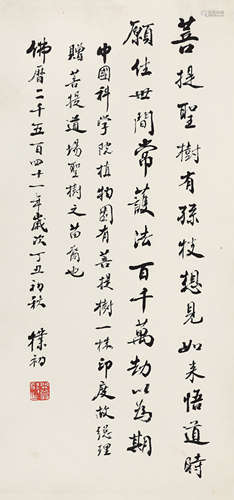 菩提聖樹有孫枝想見如来悟道時
願住世間常護法百千萬劫以為期
中國科学院植物園有菩提樹一株印度故総理
贈菩提道場聖樹之苗裔也
佛曆二千五百四十一年歲次丁丑初秋 樸初